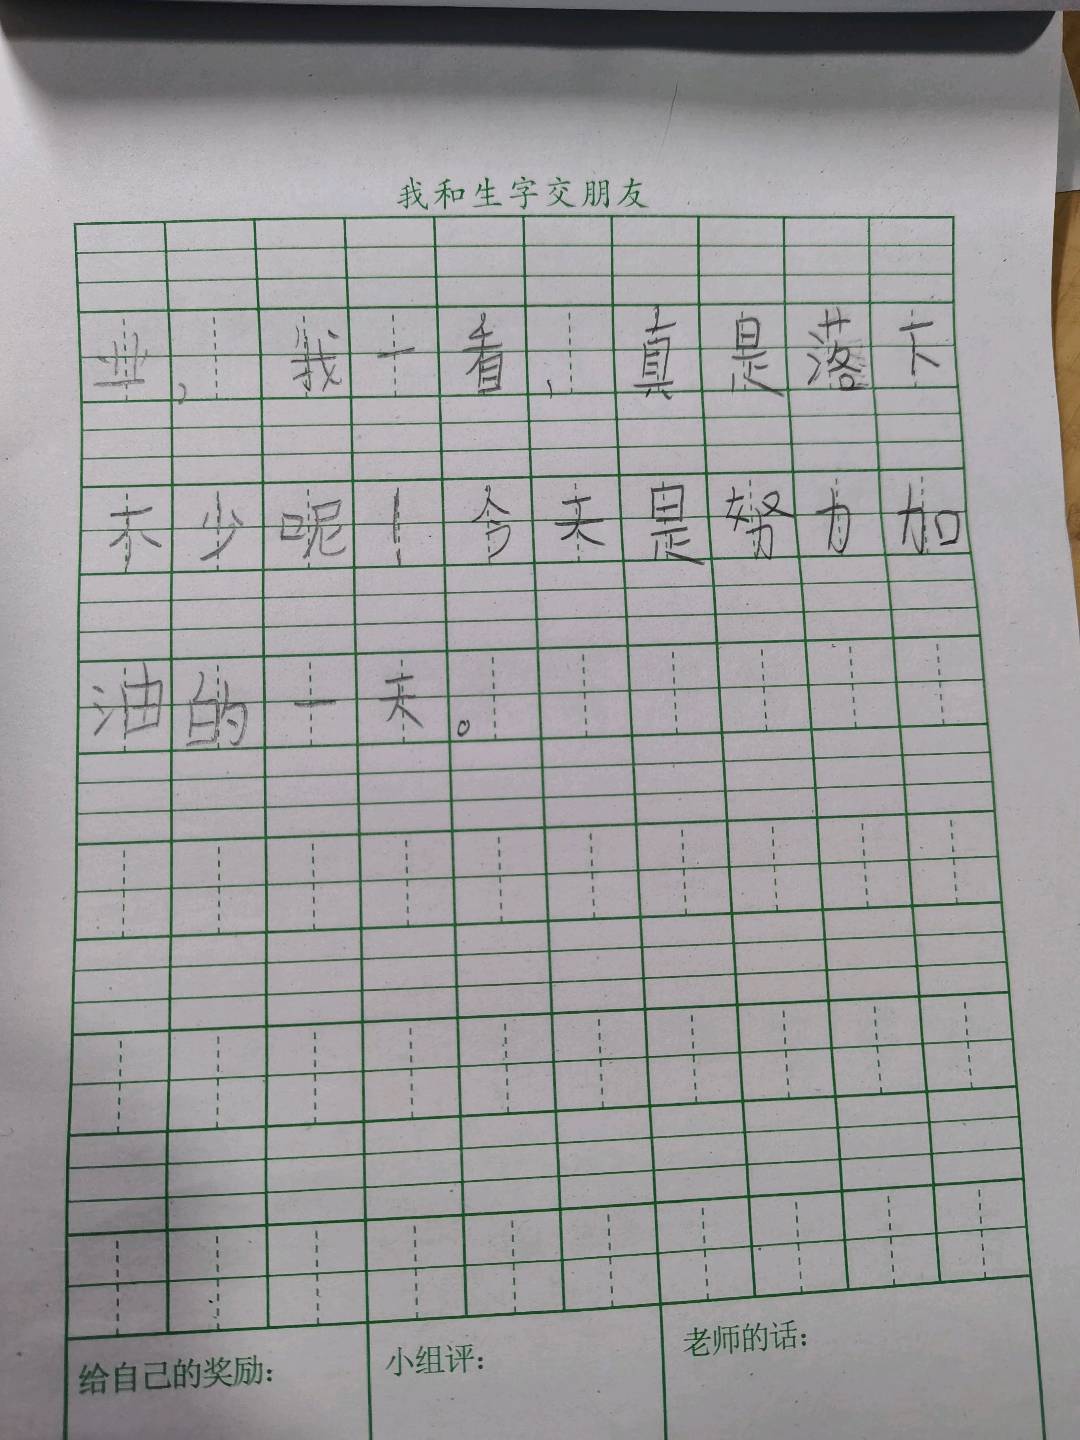 我和生字交朋友
业,我一看,真是落下
不少呢!今天是努力加
油的一天。
给自己的奖励:
小组评:
老师的话: